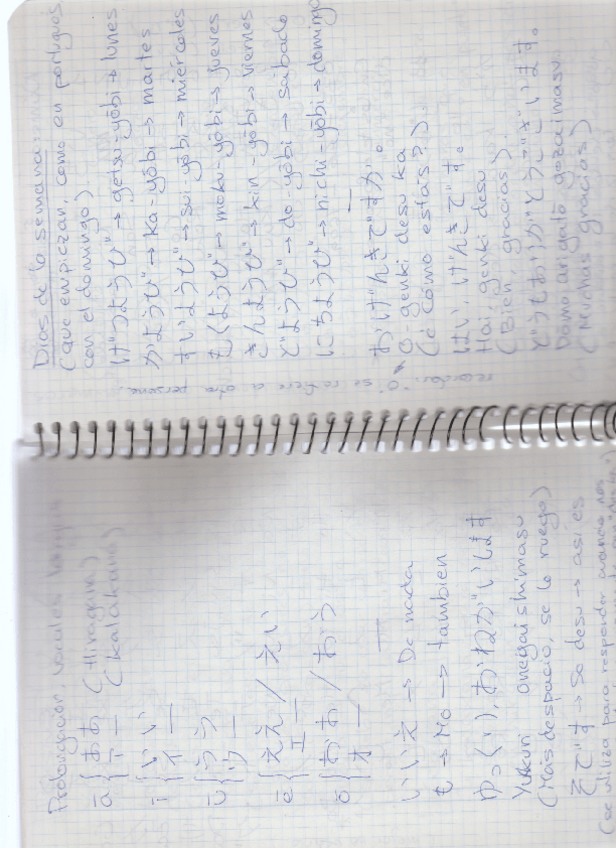 Prolongación vocales largas
ā { ああ (Hiragana)
アー (Katakana)
ī { いい
イー
ū { うう
ウー
ē { ええ / えい
エー
ō { おお / おう
オー
いいえ → De nada
も → Mo → también
ゆっくり, おねがいします
Yukkuri onegaishimasu
(Más despacio, se lo ruego)
そです → So desu → así es
(se utiliza para responder cuando nos
Días de la semana
(que empiezan, como en portugués
con el domingo)
げつようび → getsu-yōbi → lunes
かようび → ka-yōbi → martes
すいようび → sui-yōbi → miércoles
もくようび → moku-yōbi → jueves
きんようび → kin-yōbi → viernes
どようび → do-yōbi → sábado
にちようび → nichi-yōbi → domingo
おげんきですか。
O-genki desu ka
(¿Cómo estás?)
はい, げんきです。
Hai, genki desu
(Bien, gracias)
どうもありがとうございます。
Domo arigatō gozaimasu
(Muchas gracias)
recordar, "O" se refiere a otra persona.